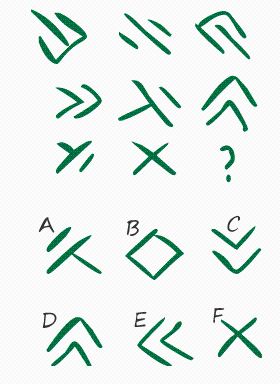 ?
A B C
D E F